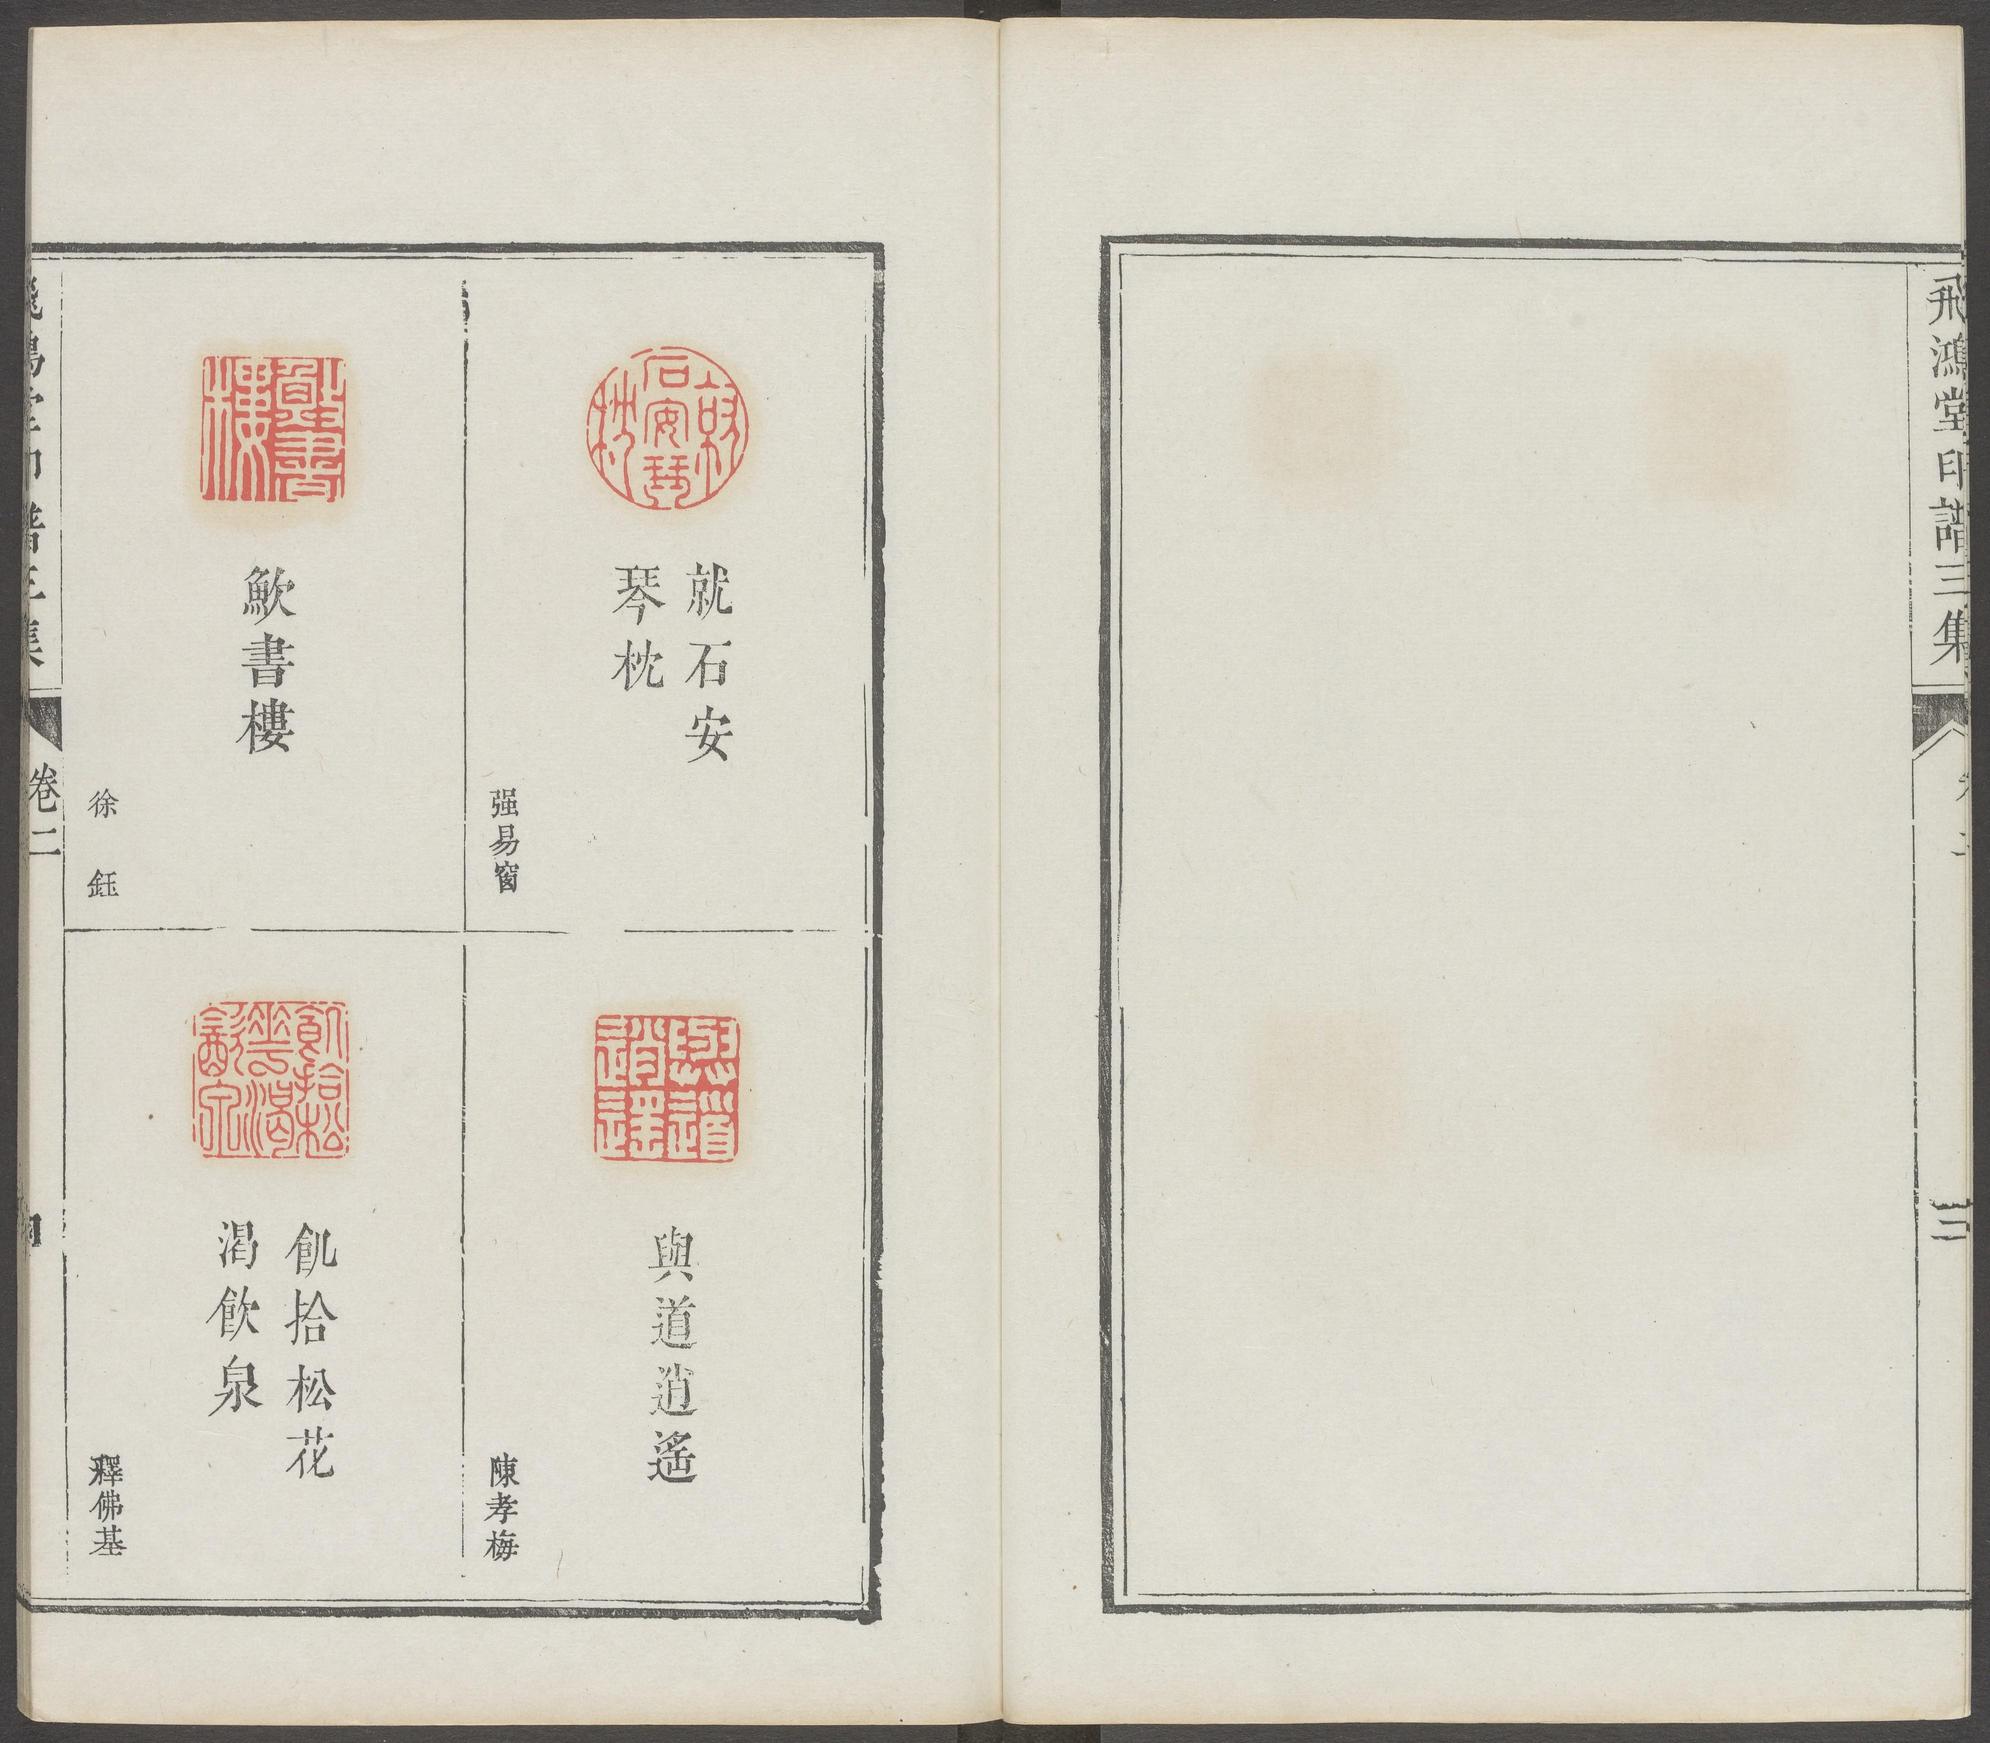 飛鴻堂印譜三集
三
就石安
琴枕
强易窗
魰書樓
徐鈺
與道逍遙
陳孝梅
飢拾松花
渴飲泉
釋佛基
飛鴻堂印譜三集
卷二
四